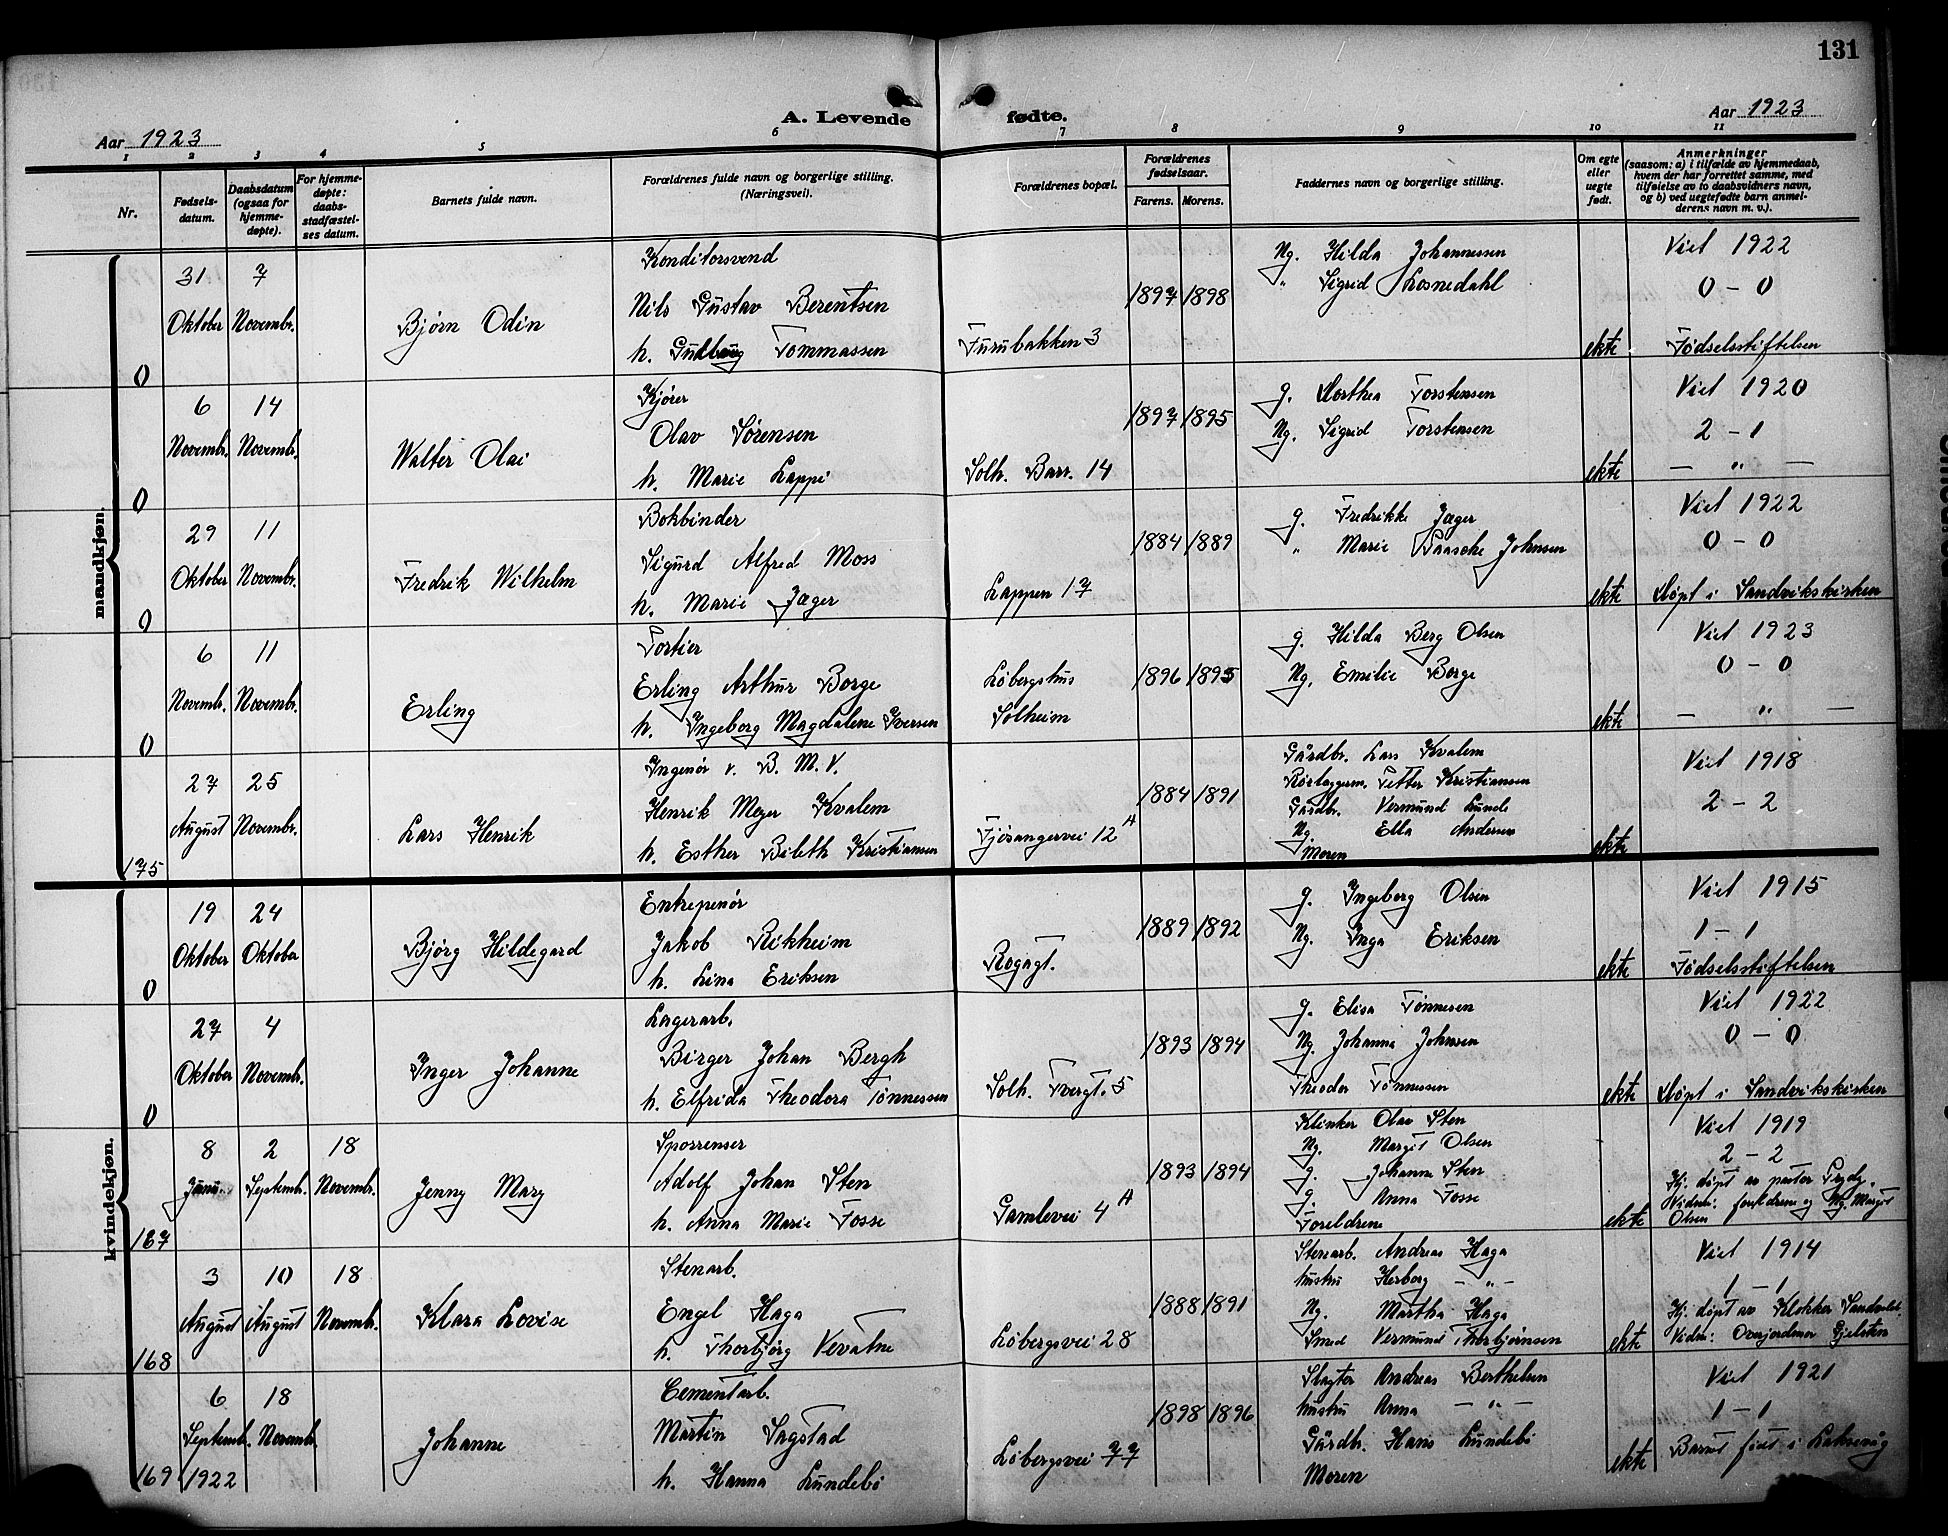 131
A. Levende fødte.
Aar 1923
Aar 1923
1 2 3 4 5 6 7 8 9 10 11
Nr.
Fødsels-
datum.
Daabsdatum
(ogsaa for
hjemme-
døpte).
For hjemme-
døpte:
daabs-
stadfæstel-
ses datum.
Barnets fulde navn.
Forældrenes fulde navn og borgerlige stilling.
(Næringsvei).
Forældrenes bopæl.
Forældrenes
fødselsaar.
Farens. Morens.
Faddernes navn og borgerlige stilling.
Om egte
eller
uegte
født.
Anmerkninger
(saasom: a) i tilfælde av hjemmedaab,
hvem der har forrettet samme, med
tilføielse av to daabsvidners navn,
og b) ved uegtefødte barn anmel-
derens navn m. v.).
mandkjøn.
0
31 Oktober
7 Novembr.
Bjørn Odin
Konditorsvend
Nils Gustav Berentsen
h. Gudbjug Tommassen
Furubakken 3
1897 1898
Ng. Hilda Johannessen
" Sigrid Losnedahl
ekte
Viet 1922
0 - 0
Fødselsstiftelsen
0
6 Novembr.
14 Novembr.
Walter Olai
Kjører
Olav Sørensen
h. Marie Lappi
Solh. Barr. 14
1897 1895
g. Dorthea Torstensen
Ng. Sigrid Torstensen
ekte
Viet 1920
2 - 1
— " —
0
29 Oktober
11 Novembr.
Fredrik Wilhelm
Bokbinder
Sigurd Alfred Moss
h. Marie Jæger
Lappen 17
1884 1889
g. Fredrikke Jæger
" Marie Paasche Johnsen
ekte
Viet 1922
0 - 0
Døpt i Sandvikskirken
0
6 Novembr.
11 Novembr.
Erling
Portier
Erling Arthur Borge
h. Ingeborg Magdalene Iversen
Løbergshus
Solheim
1896 1895
g. Hilda Berg Olsen
Ng. Emilie Borge
ekte
Viet 1923
0 - 0
— " —
175
27 August
25 Novembr.
Lars Henrik
Ingenør v. B. M. V.
Henrik Meyer Kvalem
h. Esther Bileth Kristiansen
Fjøsangervei 12 A
1884 1891
Gårdbr. Lars Kvalem
Rørlæggerm. Petter Kristiansen
Gårdbr. Vermund Lunde
Ng. Ella Andersen
Moren
ekte
Viet 1918
2 - 2
kvindekjøn.
0
19 Oktober
24 Oktober
Bjørg Hildegard
Entrepenør
Jakob Rikheim
h. Lina Eriksen
Rogagt.
1889 1892
g. Ingeborg Olsen
Ng. Inga Eriksen
ekte
Viet 1915
1 - 1
Fødselsstiftelsen
0
27 Oktober
4 Novembr.
Inger Johanne
Lagerarb.
Birger Johan Bergh
h. Elfrida Theodora Tønnessen
Solh. Tvergt. 5
1893 1894
g. Elisa Tønnesen
Ng. Johanna Johnsen
Theodor Tønnessen
ekte
Viet 1922
0 - 0
Døpt i Sandvikskirken
167
8 Juni
2 Septemb.
18 Novemb.
Jenny Mary
Sporrenser
Adolf Johan Sten
h. Anna Marie Fosse
Gamlevei 4 A
1893 1894
Klinker Olav Sten
Ng. Margit Olsen
g. Johanne Sten
g. Anna Fosse
Foreldrene
ekte
Viet 1919
2 - 2
Hj. døpt av pastor
Vidner: foreldrene og Ng. Margit
Olsen
168
3 August
10 August
18 Novemb.
Klara Lovise
Stenarb.
Engel Haga
h. Thorbjørg Vevatne
Løbergsvei 28
1888 1891
Stenarb. Andreas Haga
hustru Herborg — " —
Ng. Martha Haga
Smed Vermund Thorbjørnsen
ekte
Viet 1914
1 - 1
Hj. døpt av Klokker
Vidn: Overjordmor Gjelsten
169
6 Septemb. 1922
18 Novemb.
Johanne
Cementarb.
Martin Sagstad
h. Hanna Lundebø
Løbergsvei 77
1898 1896
Slagter Andreas Berthelsen
hustru Anna — " —
Gårdbr. Hans Lundebø
Moren
ekte
Viet 1921
1 - 1
Barnet født i Laksevåg